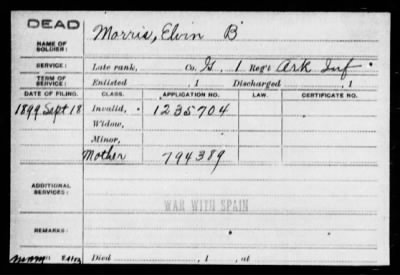 DEAD
NAME OF SOLDIER: Morris, Elvin B
SERVICE: Late rank, Co. G, 1 Reg't Ark Inf
TERM OF SERVICE: Enlisted , 1 Discharged , 1
DATE OF FILING. CLASS. APPLICATION NO. LAW. CERTIFICATE NO.
1899 Sept 18 Invalid, 1235704
Widow,
Minor,
Mother 794389
ADDITIONAL SERVICES:
WAR WITH SPAIN
REMARKS:
Died , 1 , at